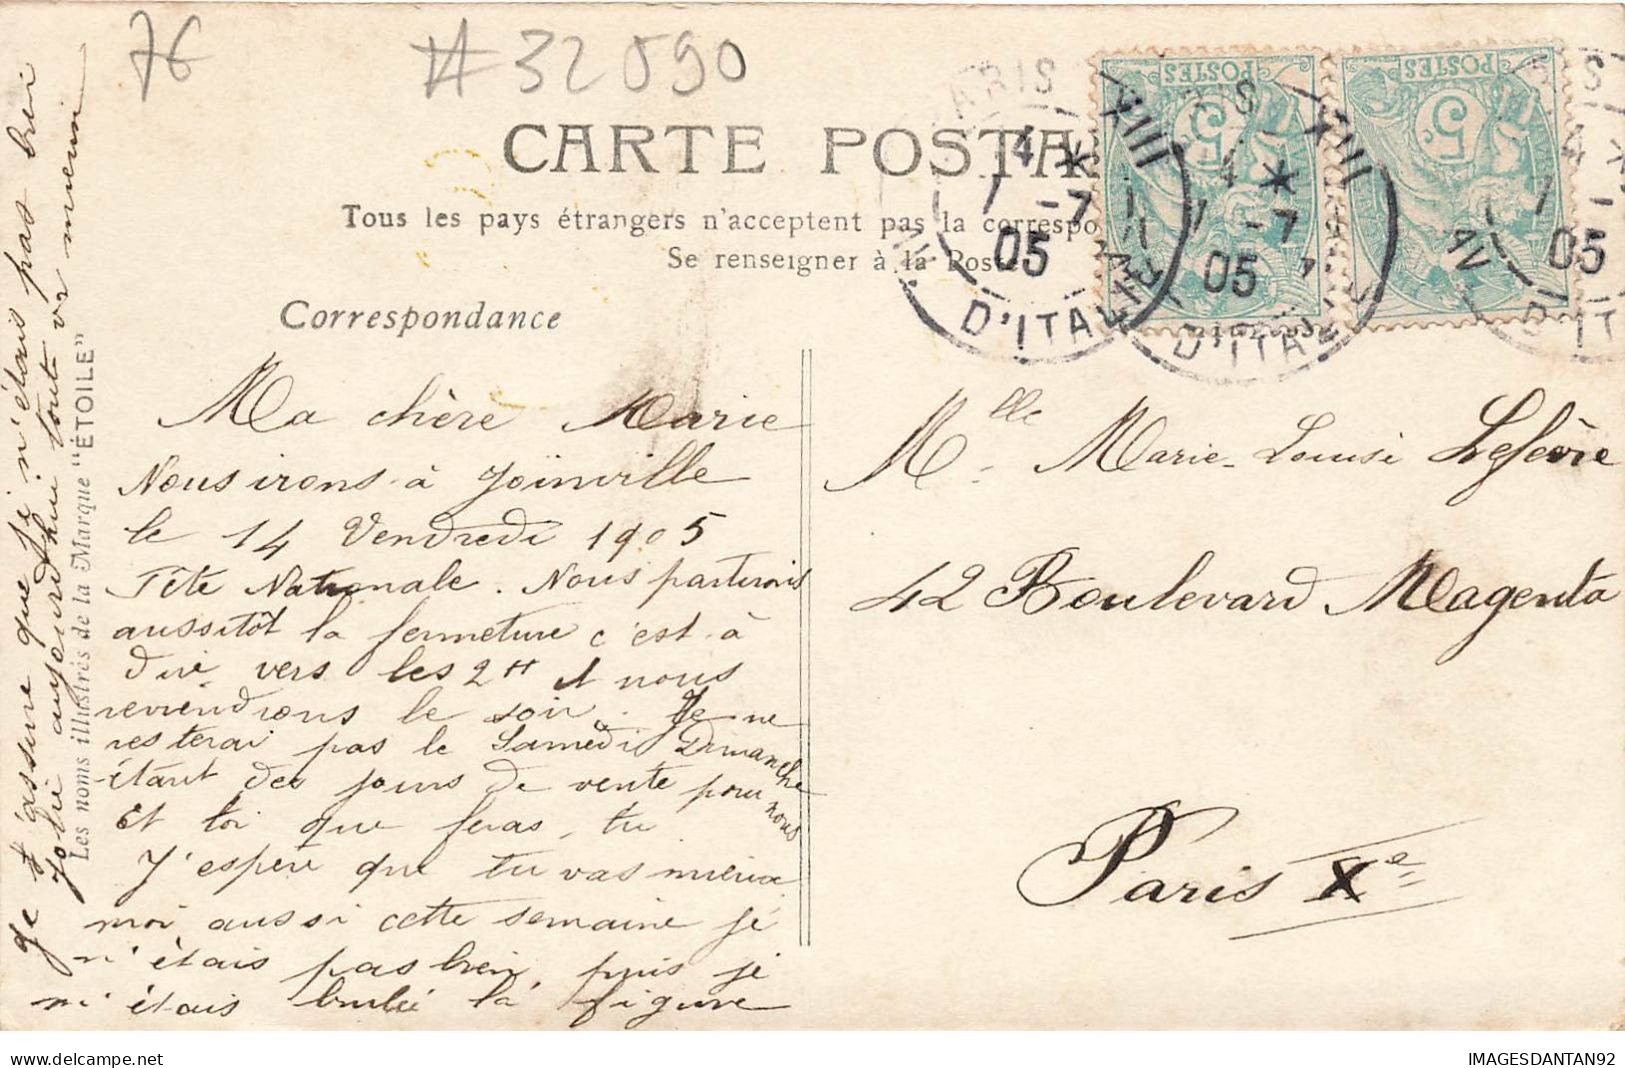 76
#32590
CARTE POSTA
Tous les pays étrangers n'acceptent pas la correspo
Se renseigner à la Poste
POSTES
5
POSTES
5
PARIS XIII
4 *
1 -7
05
AV. D'ITALIE
PARIS XIII
4 *
1 -7
05
AV. D'ITALIE
05
AV D'IT
Correspondance
Ma chère Marie
Nous irons à Joinville
le 14 Vendredi 1905
Fête Nationale. Nous partirons
aussitôt la fermeture c'est à
dire vers les 2 H et nous
reviendrons le soir. Je ne
resterai pas le Samedi Dimanche
étant des jours de vente pour nous
Et toi que feras-tu
J'espère que tu vas mieux
moi aussi cette semaine je
n'étais pas bien, puis je
m'étais brulée la figure
Je t'assure que je n'étais pas bien
jolie aujourd'hui tout va mieux
Les noms illustrés de la Marque "ÉTOILE"
Mlle Marie-Louise Lefèvre
42 Boulevard Magenta
Paris Xe
IMAGESDANTAN92